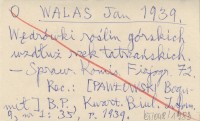 WALAS Jan 1939.
Wędrówki roślin górskich
wzdłuż rzek tatrzańskich.
– Spraw. Komis. Fizjogr. 72.
Rec.: [PAWŁOWSKI Bogu-
mił], B.P., Kwart. Biul. Inform.
9, nr 1: 35, r. 1939.